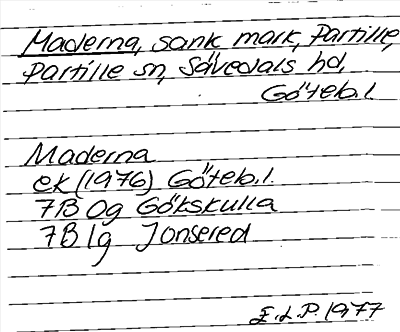 Maderna, sank mark, Partille,
Partille sn, Sävedals hd,
Göteb. l.
Maderna
ek (1976) Göteb. l.
7B 0g Gökskulla
7B 1g Jonsered
E.L.P. 1977